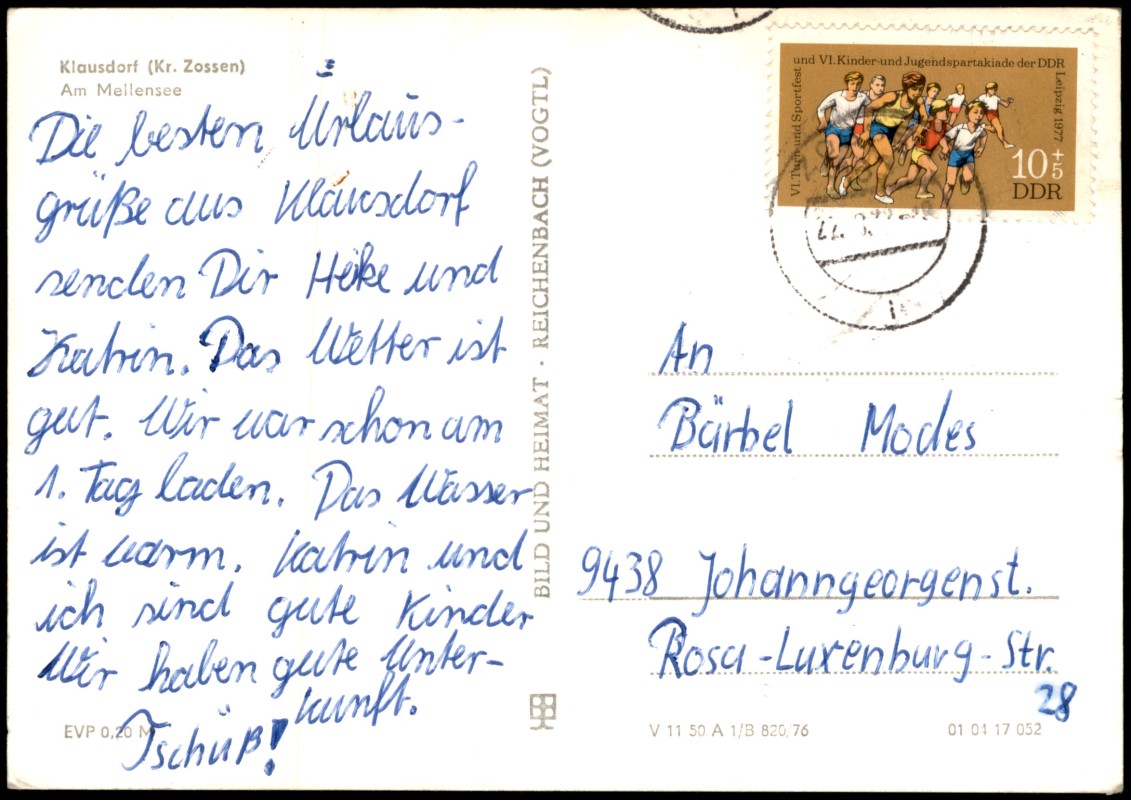 Klausdorf (Kr. Zossen)
Am Mellensee
Die besten Urlaus-
grüße aus Klausdorf
senden Dir Heike und
Katrin. Das Wetter ist
gut. Wir war schon am
1. Tag baden. Das Wasser
ist warm. Katrin und
ich sind gute Kinder
Wir haben gute Unter-
kunft.
Tschüß!
EVP 0,20 M
BILD UND HEIMAT · REICHENBACH (VOGTL)
VI. Turn- und Sportfest
und VI. Kinder- und Jugendspartakiade der DDR
Leipzig 1977
10+5
DDR
An
Bärbel Modes
9438 Johanngeorgenst.
Rosa-Luxenburg-Str.
28
V 11 50 A 1/B 820/76
01 04 17 052